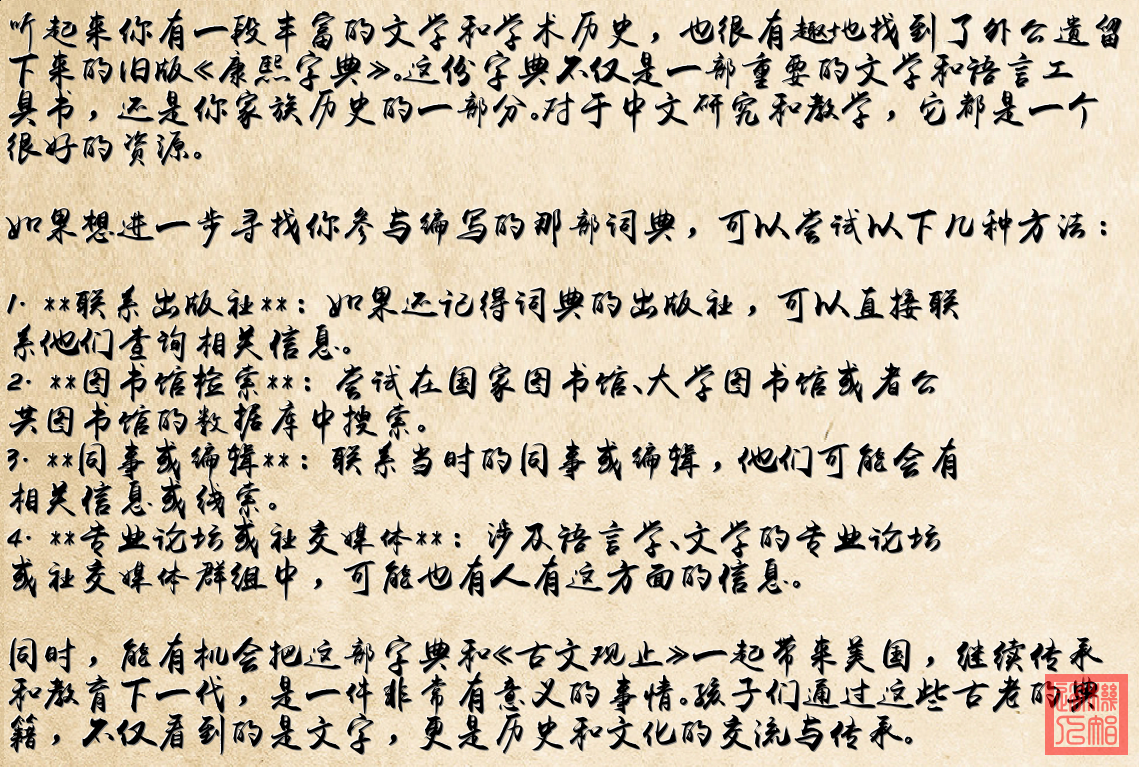 听起来你有一段丰富的文学和学术历史，也很有趣地找到了外公遗留
下来的旧版《康熙字典》。这份字典不仅是一部重要的文学和语言工
具书，还是你家族历史的一部分。对于中文研究和教学，它都是一个
很好的资源。
如果想进一步寻找你参与编写的那部词典，可以尝试以下几种方法：
1. **联系出版社**：如果还记得词典的出版社，可以直接联
系他们查询相关信息。
2. **图书馆检索**：尝试在国家图书馆、大学图书馆或者公
共图书馆的数据库中搜索。
3. **同事或编辑**：联系当时的同事或编辑，他们可能会有
相关信息或线索。
4. **专业论坛或社交媒体**：涉及语言学、文学的专业论坛
或社交媒体群组中，可能也有人有这方面的信息。
同时，能有机会把这部字典和《古文观止》一起带来美国，继续传承
和教育下一代，是一件非常有意义的事情。孩子们通过这些古老的典
籍，不仅看到的是文字，更是历史和文化的交流与传承。